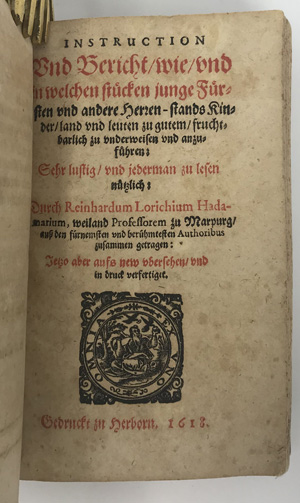 INSTRUCTION
Vnd Bericht/wie/vnd
in welchen stücken junge Für-
sten vnd andere Herren-stands Kin-
der/land vnd leuten zu gutem/frucht-
barlich zu vnderweisen vnd anzu-
führen:
Sehr lustig/vnd jederman zu lesen
nützlich:
Durch Reinhardum Lorichium Hada-
marium, weiland Professorem zu Marpurg/
auß den fürnemsten vnd berühmtesten Authoribus
zusammen getragen:
Jetzo aber auffs new vbersehen/vnd
in druck verfertiget.
OMNIA EX VNO
Gedruckt zu Herborn, 1618.